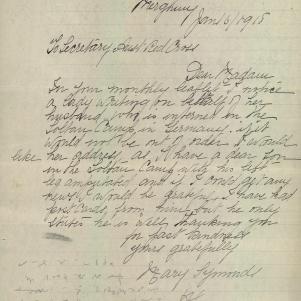 Jan 8/1915
To Secretary Aust Red Cross
Dear Madam
In your monthly leaflet I notice
a lady writing on behalf of her
husband, who is interned in the
Soltau Camp in Germany. if it
would not be out of order I would
like her address as I have a dear son
in the Soltau Camp with his left
leg amputated and if I could get any
news I would be grateful I have had
post cards from him but he only
states he is well, thanking you
for past kindness
yours gratefully
Mary Symonds